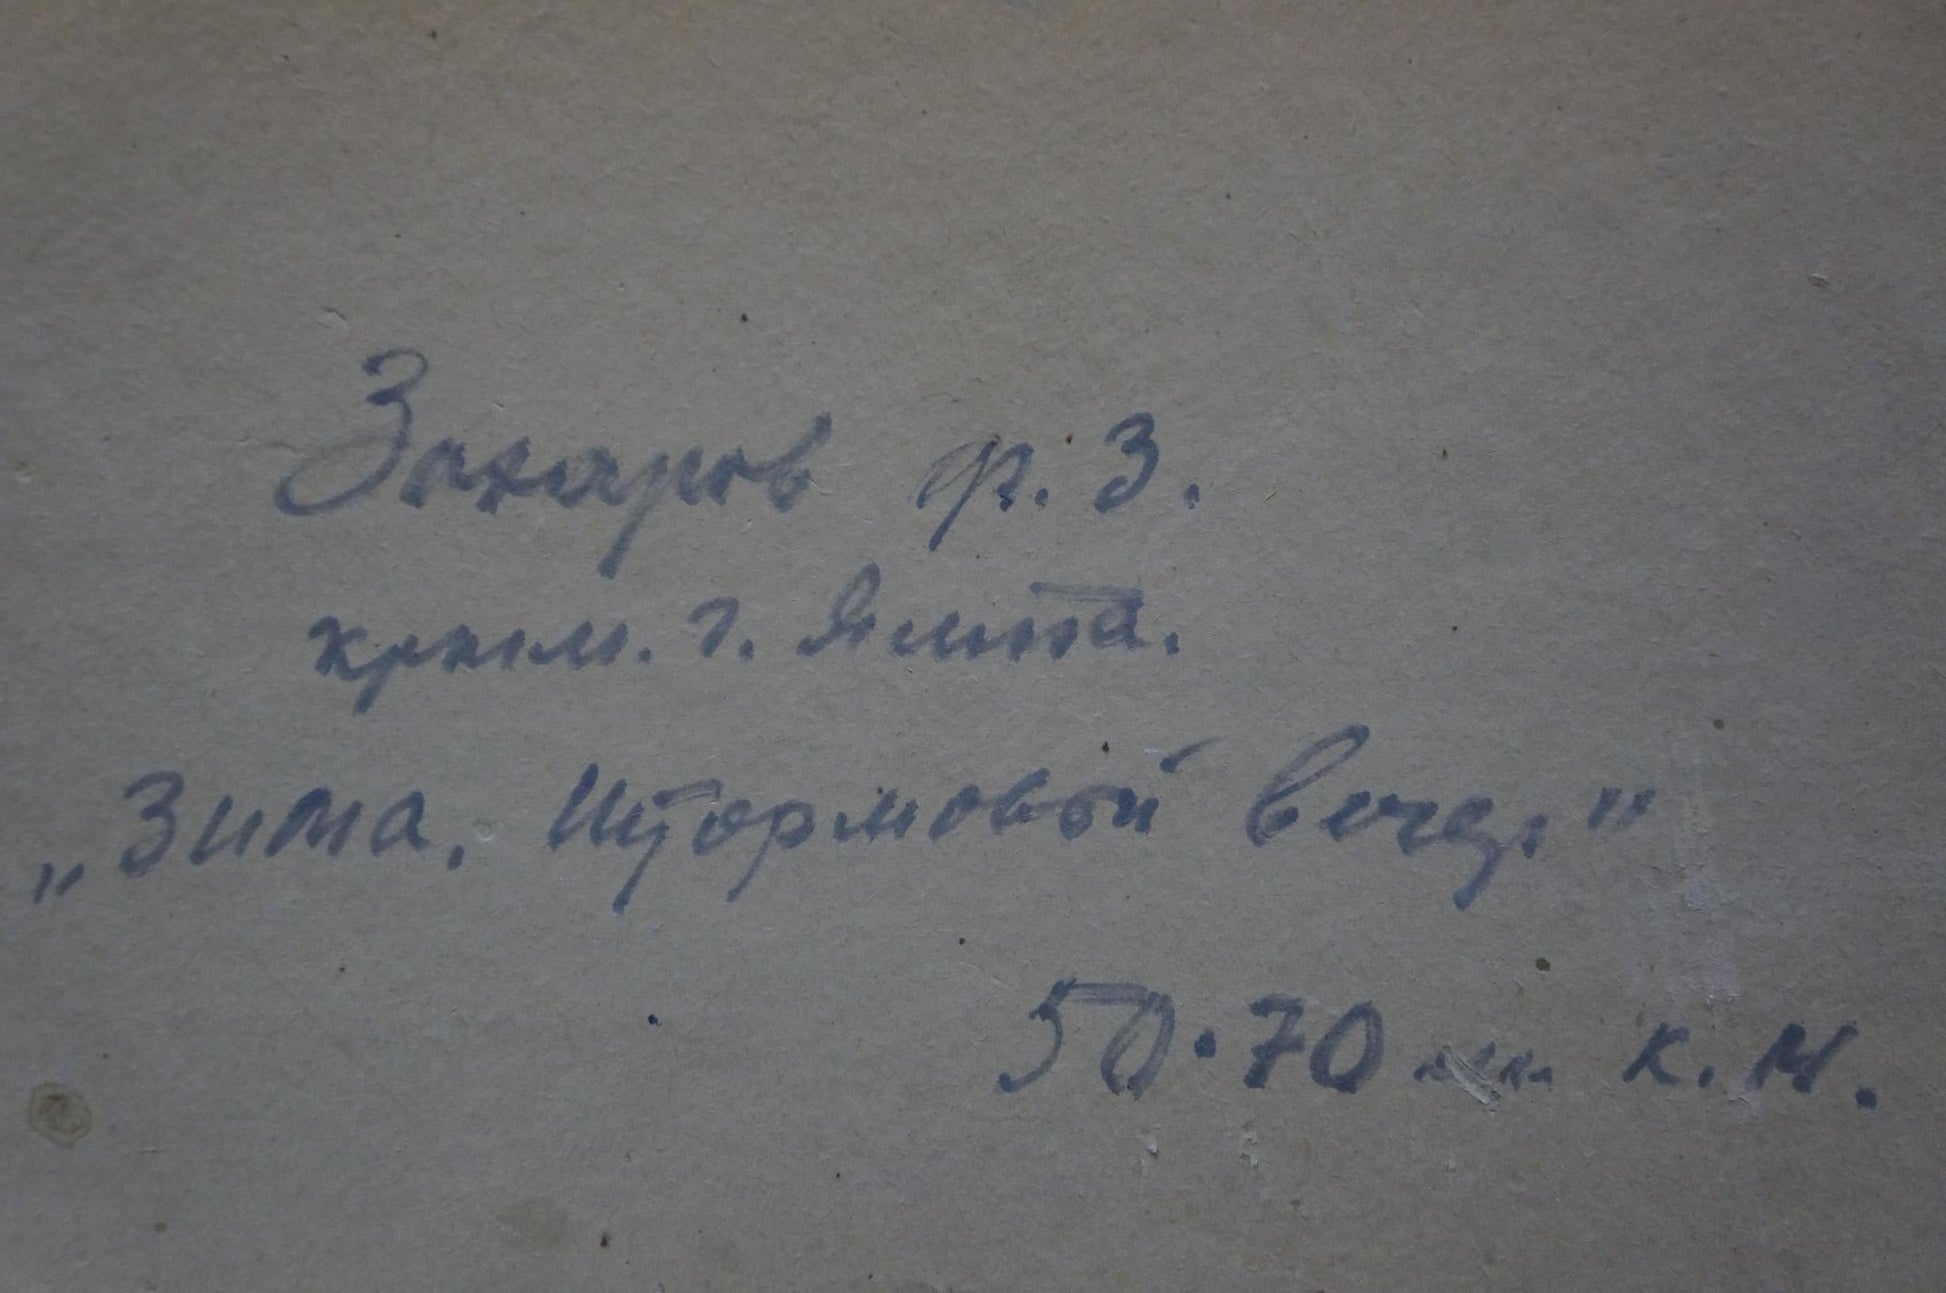 Захаров Ф. З.
крым. г. Ялта.
„Зима. Штормовый вечер."
50·70 к. м.